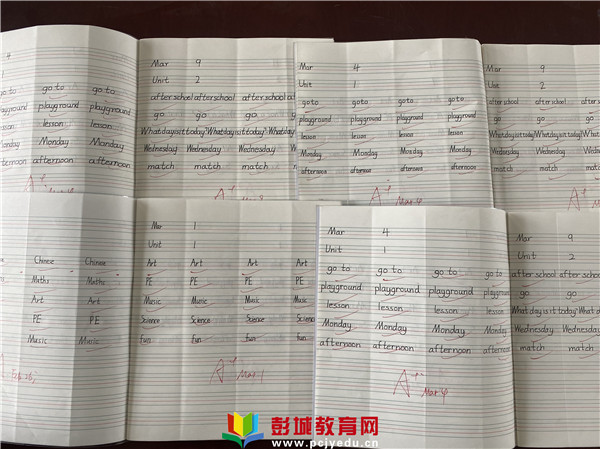 4
1
go to go to go to
playground playground playground
lesson lesson lesson
Monday Monday Monday
afternoon afternoon afternoon
A+
Mar 9
Unit 2
after school after school after school
go go go
What day is it today? What day is it today? What day
Wednesday Wednesday Wednesday
match match match
A+
Mar 4
Unit 1
go to go to go to go to
playground playground playground playground
lesson lesson lesson lesson
Monday Monday Monday Monday
afternoon afternoon afternoon afternoon
A+ Mar 4
Mar 9
Unit 2
after school after school after school
go go go
What day is it today? What day is it today? What day
Wednesday Wednesday Wednesday
match match match
A+
Chinese Chinese
Maths Maths
Art Art
PE PE
Music Music
Mar 1
Unit 1
Art Art Art Art
PE PE PE PE
Music Music Music Music
Science Science Science Science
fun fun fun fun
A+ Mar 1
Mar 4
Unit 1
go to go to go to go to
playground playground playground
lesson lesson lesson lesson
Monday Monday Monday Monday
afternoon afternoon afternoon afternoon
A+ Mar 4
Mar 9
Unit 2
after school after school
go go
What day is it today? What day
Wednesday Wednesday
match match
彭城教育网
www.pcjyedu.cn